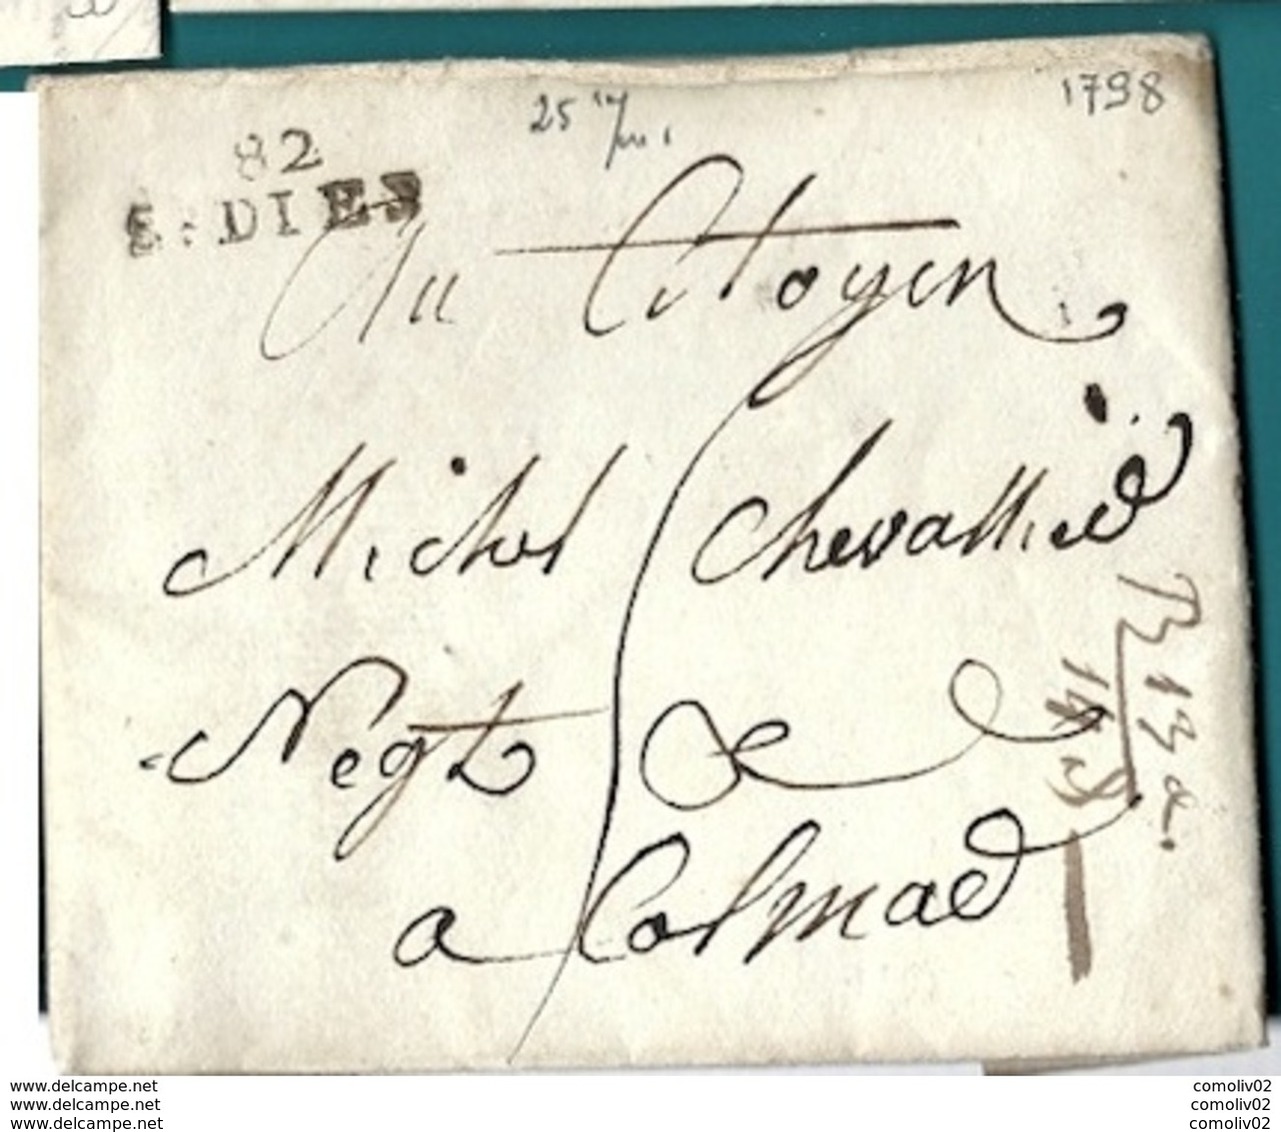 1798
25
82
S: DIEZ
Au Citoyen
Michel Chevallier
Negt &
a Colmar
www.delcampe.net
www.delcampe.net
www.delcampe.net
comoliv02
comoliv02
comoliv02